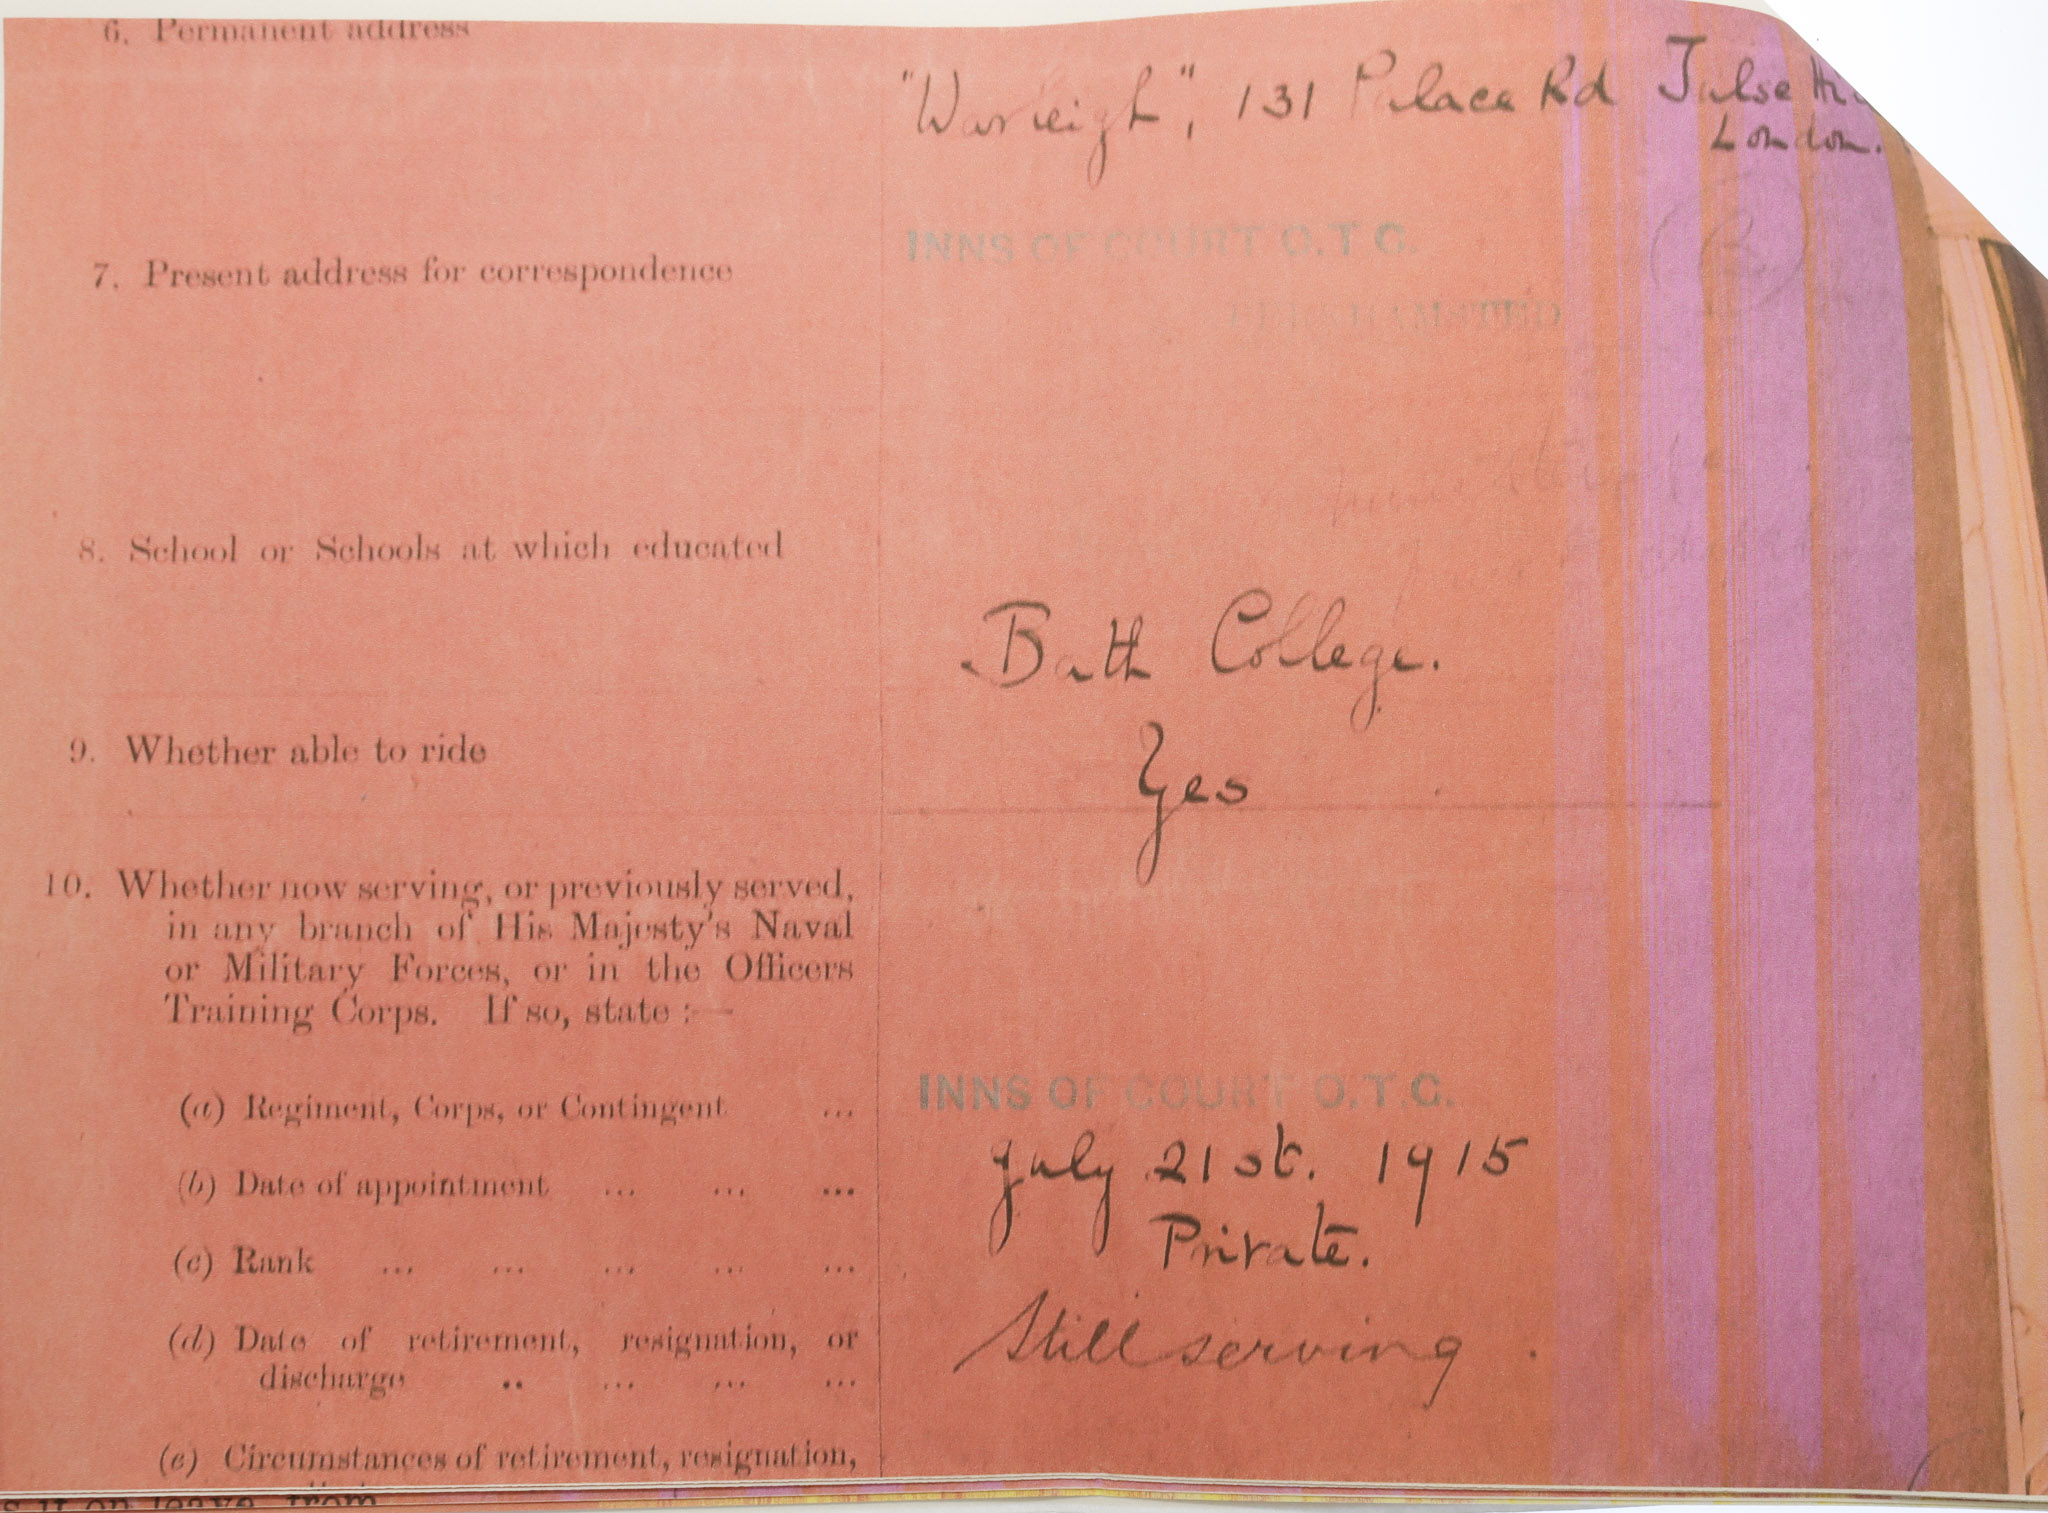 6. Permanent address
"Warleigh", 131 Palace Rd Tulse
London.
INNS OF COURT O.T.C.
7. Present address for correspondence
BERKHAMSTED
8. School or Schools at which educated
Bath College.
9. Whether able to ride
Yes
10. Whether now serving, or previously served,
in any branch of His Majesty's Naval
or Military Forces, or in the Officers
Training Corps. If so, state :—
(a) Regiment, Corps, or Contingent ...
INNS OF COURT O.T.C.
(b) Date of appointment ... ... ...
July 21st. 1915
(c) Rank ... ... ... ... ...
Private.
(d) Date of retirement, resignation, or
discharge .. ... ... ...
Still serving.
(e) Circumstances of retirement, resignation,
on leave, from